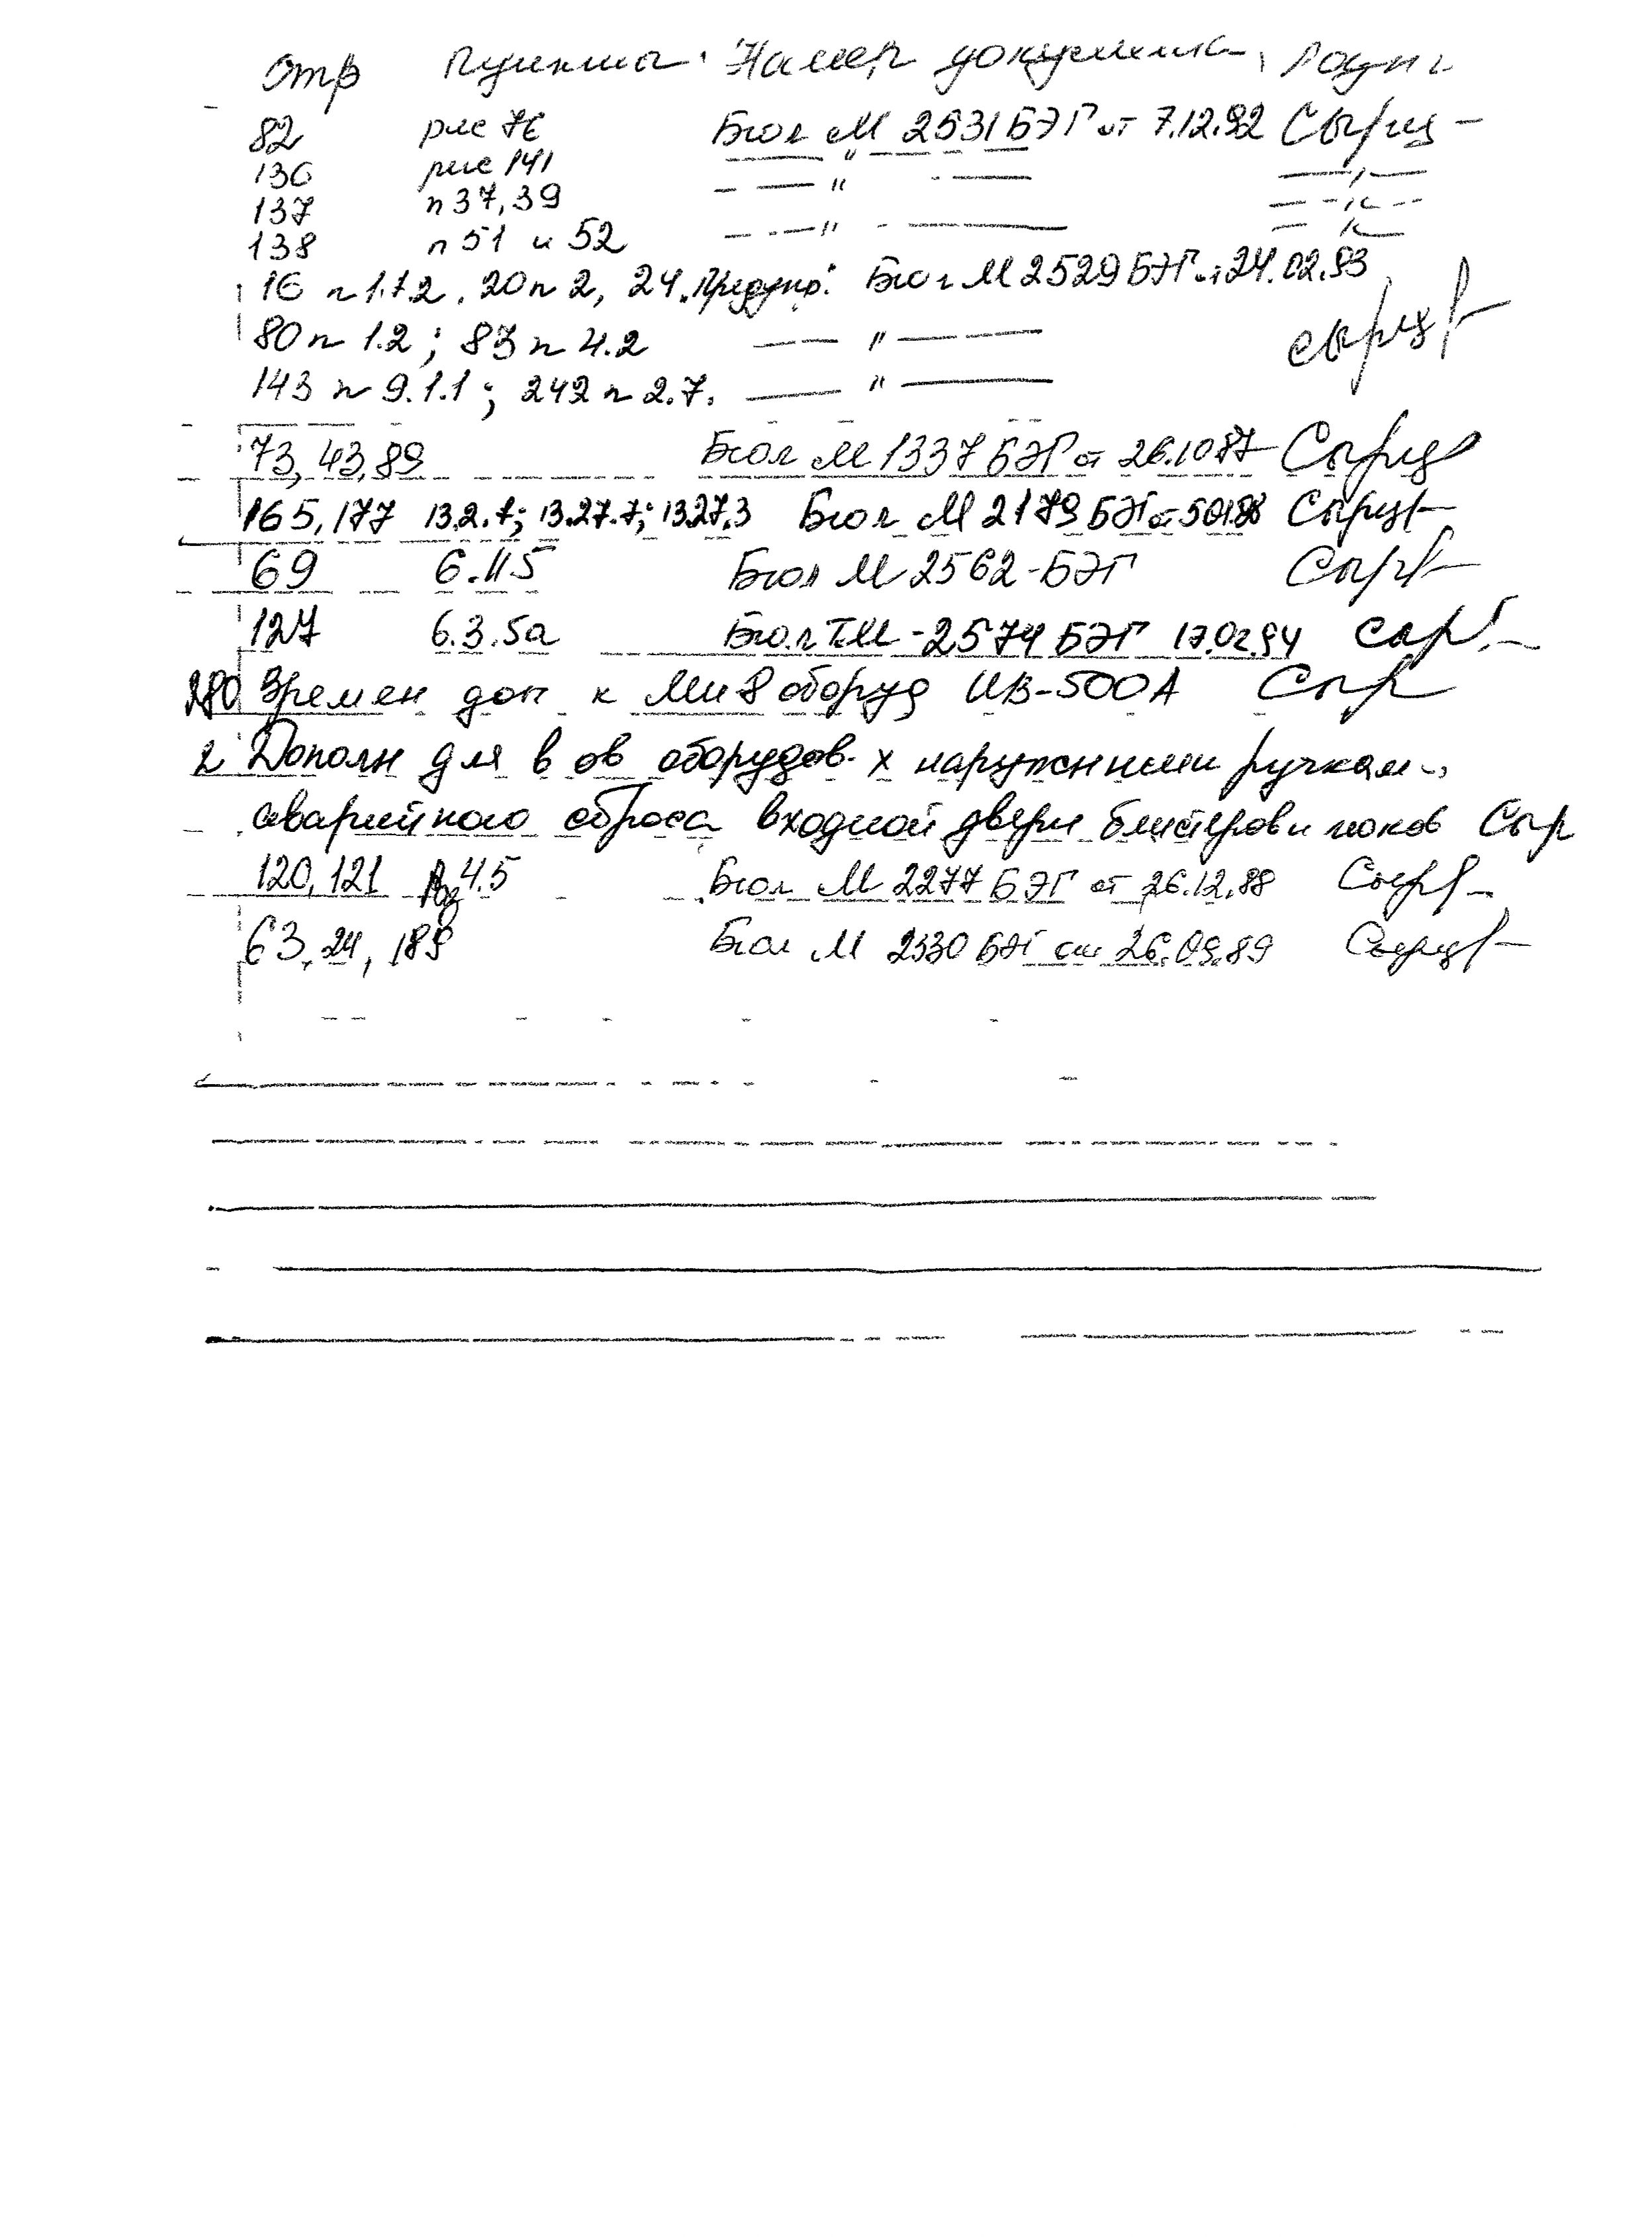 Стр Пункты Номер документа Подпи
82 рис 76 Бюл М 2531 БЭГ от 7.12.92
136 рис 141 — " —
137 п 37, 39 — " — — " —
138 п 51 и 52 — " — — " —
16 п 1.7.2, 20 п 2, 24. Предупр. Бюл М 2529 БЭГ от 24.02.93
80 п 1.2; 83 п 4.2 — " —
143 п 9.1.1; 242 п 2.7. — " —
73, 43, 89 Бюл М 1337 БЭГ от 26.10 87
165, 177 13.2.7; 13.27.7; 13.27.3 Бюл М 2179 БЭГ от
69 6.115 Бюл М 2562-БЭГ
127 6.3.5а Бюл ТМ-2574 БЭГ 17.02.94
280 Времен доп к Ми 8 оборуд ИВ-500А
2 Дополн для в ов оборудов. х наружными ручками
аварийного сброса входной двери блистеров и люков
120, 121 4.5 Бюл М 2277 БЭГ от 26.12.88
63, 24, 189 Бюл М 2330 БЭГ от 26.09.89